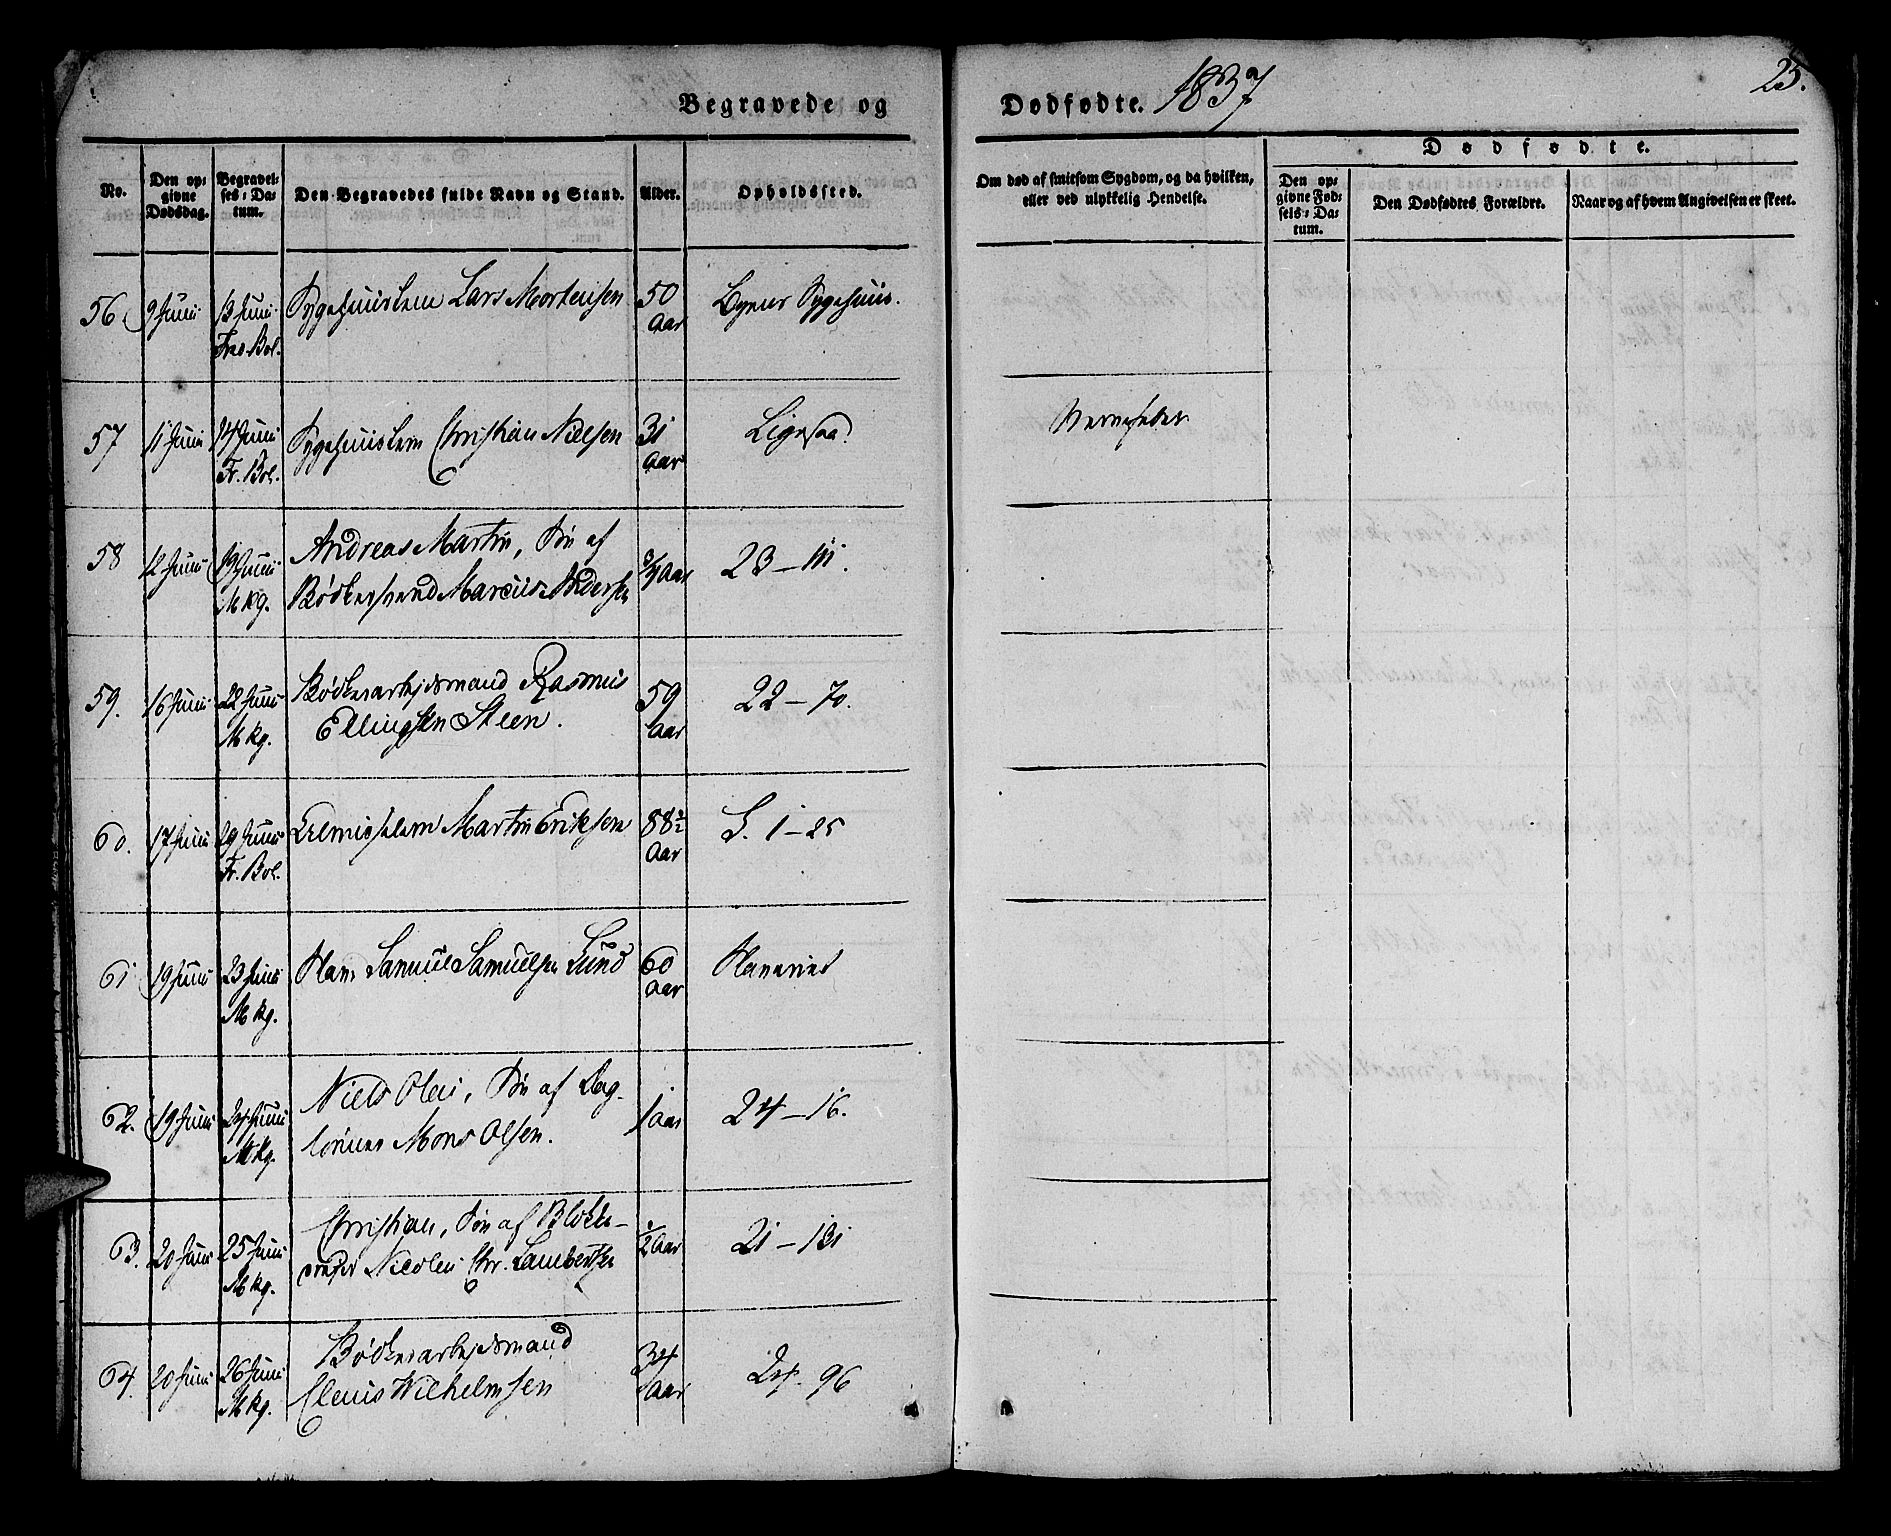 Begravede og Dødfødte. 1837
25.
No.
Den opgivne Dødsdag.
Begravelses-Datum.
Den Begravedes fulde Navn og Stand.
Alder.
Opholdssted.
Om død af smitsom Sygdom, og da hvilken, eller ved ulykkelig Hendelse.
Dødfødte.
Den opgivne Fødsels-Datum.
Den Dødfødtes Forældre.
Naar og af hvem Angivelsen er skeet.
56 9 Juni 13 Juni Sygehuuslem Lars Mortensen 50 Aar Byens Sygehuus.
Fr. Bol.
57 11 Juni 14 Juni Sygehuuslem Christian Nielsen 31 Aar Ligesaa. Nervefeber
Fr. Bol.
58 12 Juni 19 Juni Andreas Martin, Søn af
M kg. Bødkersvend Marcus Andersen 3/4 Aar 23 – 111.
59. 16 Juni 22 Juni Bødkerarbejdsmand Rasmus 59 Aar 22 – 70.
M kg. Ellingsen Steen.
60. 17 Juni 29 Juni Martin Eriksen 88½ Aar S. 1 – 25
Fr. Bol.
61 19 Juni 23 Juni Hans Samuel Samuelsen Lund 60 Aar
M kg.
62. 19 Juni 24 Juni Niels Olai, Søn af Dag-
M kg. lønner Mons Olsen. 1 Aar 24 – 16.
63. 20 Juni 25 Juni Christian, Søn af Blokke-
M kg. Nicolai Chr. Lambertsen ½ Aar 21 – 131
64. 20 Juni 26 Juni Bødkerarbejdsmand
M kg. Claus Wilhelmsen 34 Aar 24. 96